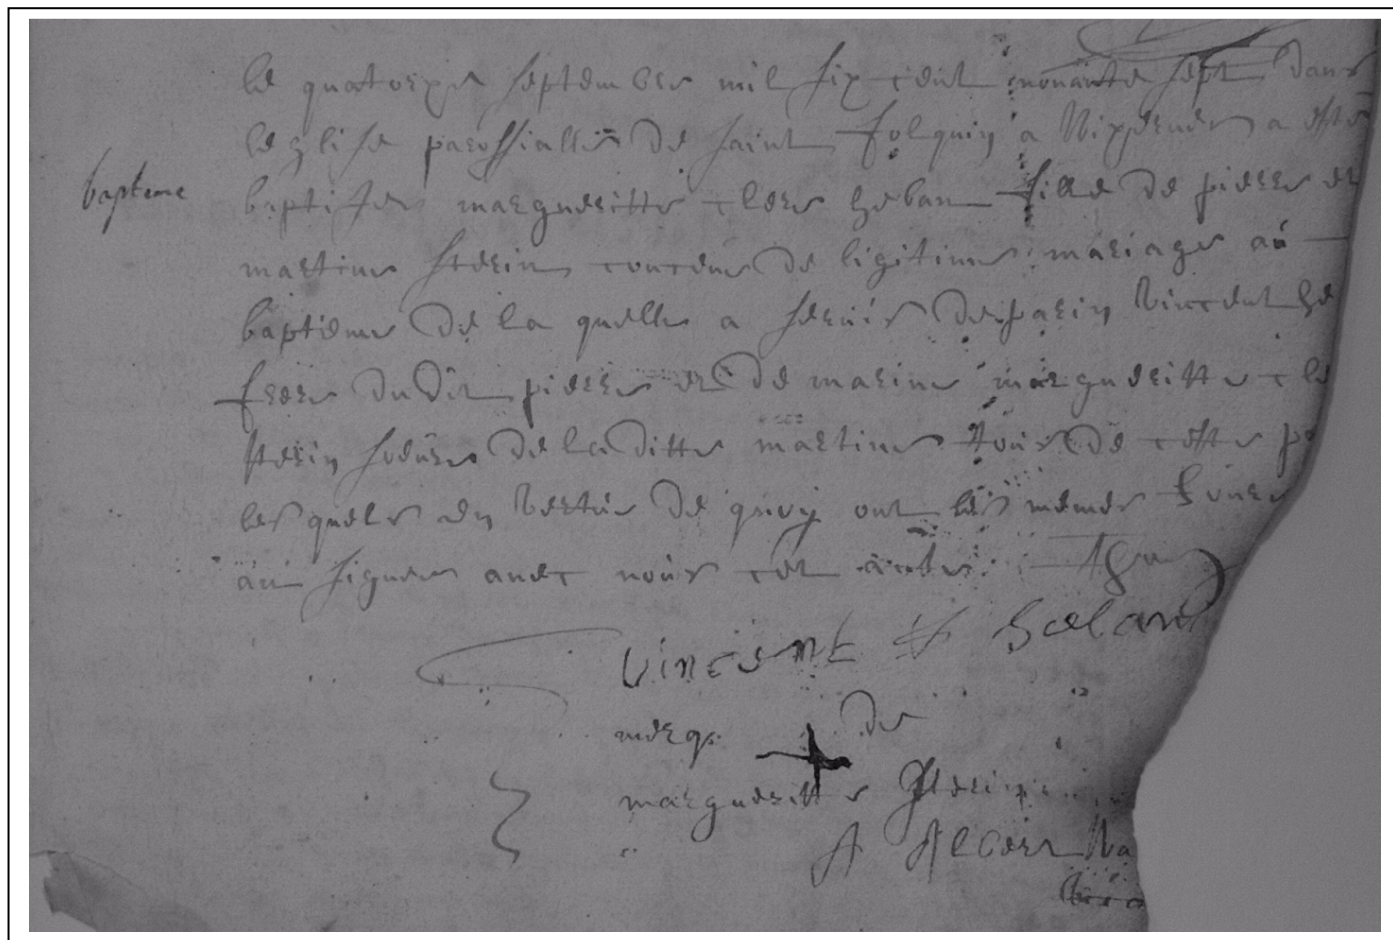 bapteme
le quatorze septembre mil six cent nonante sept dans
leglise parossialle de saint folquin a Pixpene a este
baptisee margueritte clere heban fille de pierre et
martine sterin conceue de legitime mariage au
bapteme de la quelle a servis de parin vincent he
frere du dit pierre et de marine margueritte cle
sterin soeure de la ditte martine tous de cette pa
les quels en vertus de quoy ont les memes
au signe avec nous cet acte
vincent heban
merq de
margueritte sterin
A